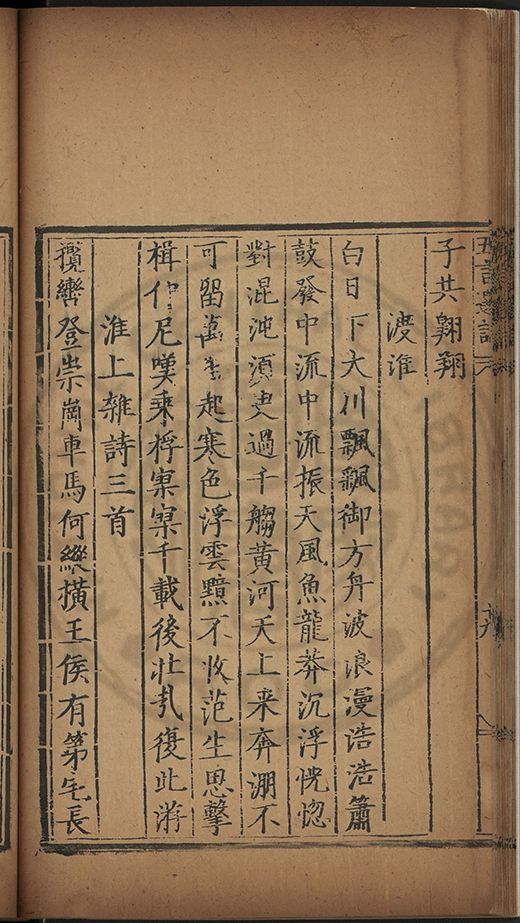 子共翱翔
渡淮
白日下大川飄飄御方舟波浪漫浩浩簫
鼓發中流中流振天風魚龍莽沉浮恍惚
對混沌須臾過千艘黄河天上来奔淜不
可留萬 起寒色浮雲黯不收范生思擊
楫仲尼嘆乘桴寞寞千載後壯哉復此游
淮上雜詩三首
攬轡登崇崗車馬何縱横王侯有第宅長